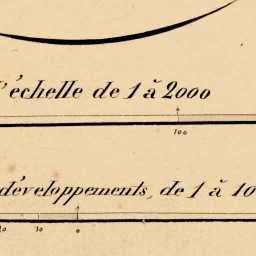 l'échelle de 1 à 2000
100
développements, de 1 à 10
10 0